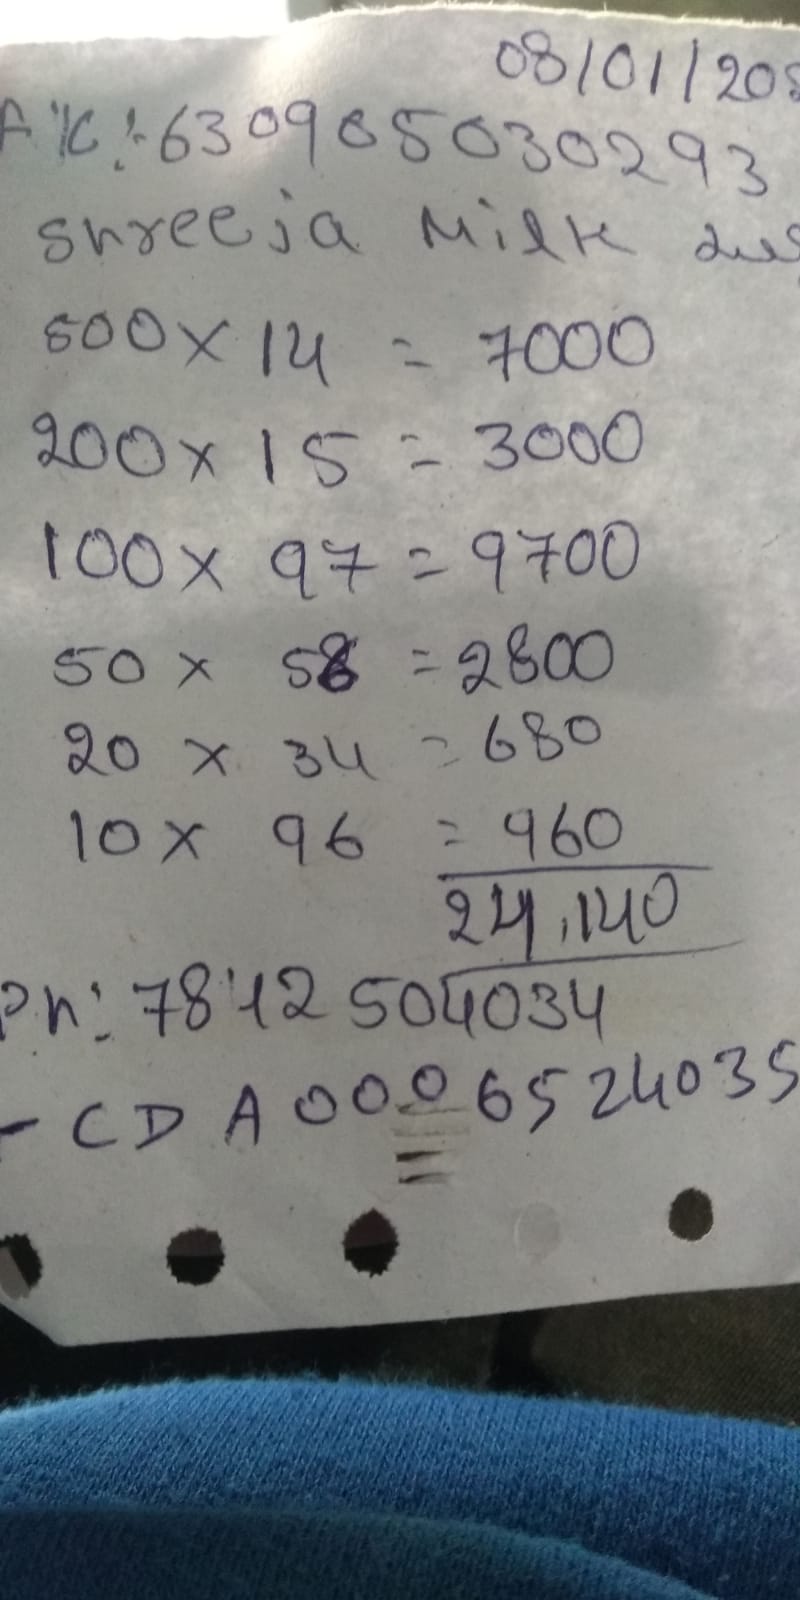 08/01/202
A/C:-630905030293
Shreeja Milk
500 x 14 = 7000
200 x 15 = 3000
100 x 97 = 9700
50 x 56 = 2800
20 x 34 = 680
10 x 96 = 960
24,140
Ph: 7842504034
- CDA0006524035